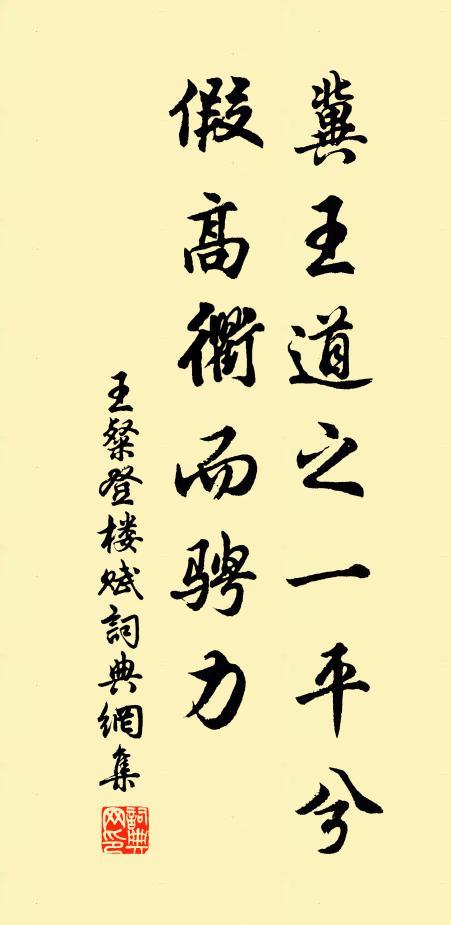 冀王道之一平兮
假高衢而骋力
王粲登楼赋詞典網集
詞典网印